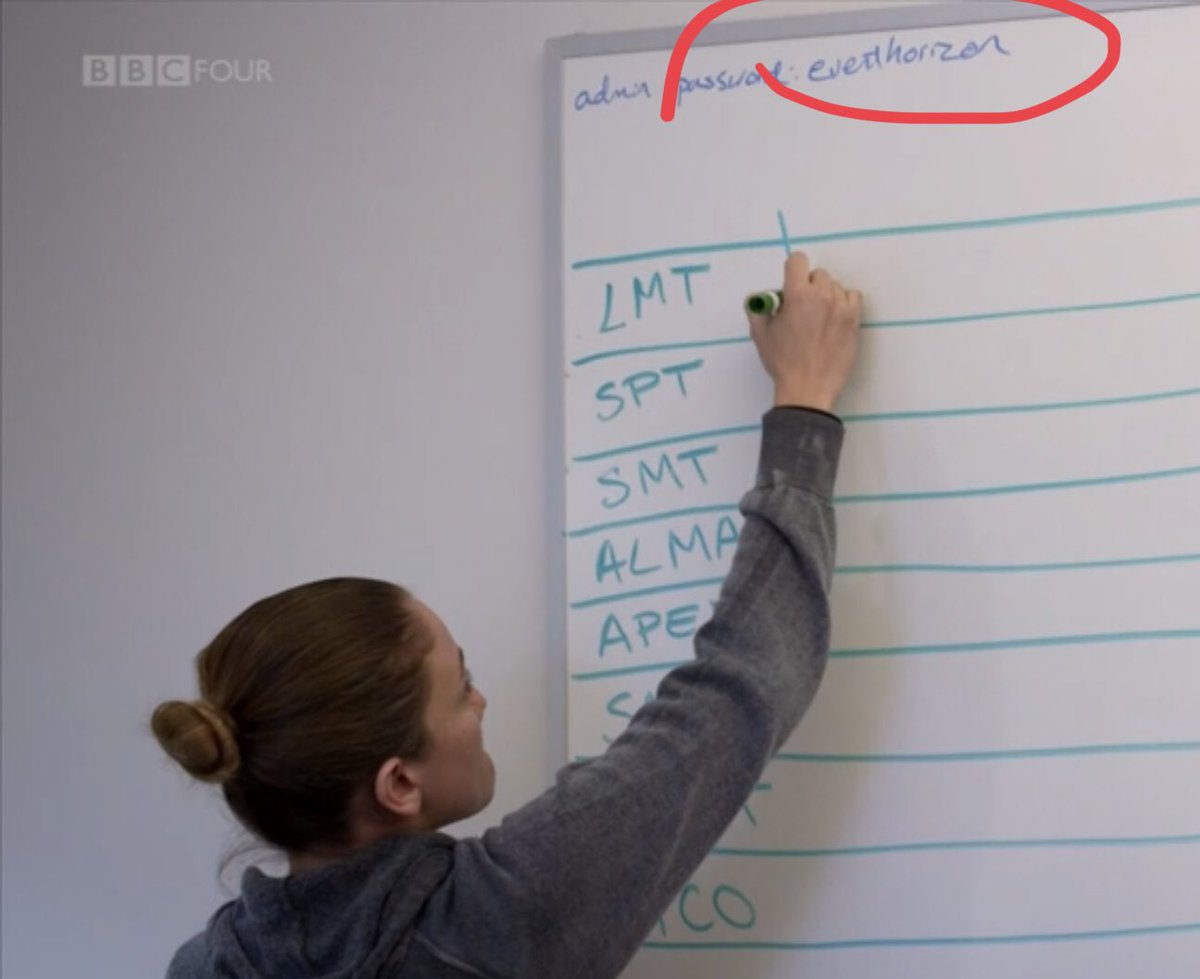 BBC FOUR
admin password: eventhorizon
LMT
SPT
SMT
ALMA